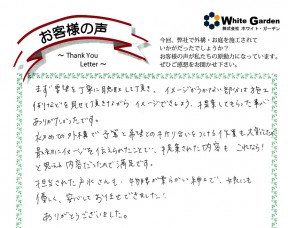 お客様の声
～ Thank You
Letter ～
White Garden
株式会社 ホワイト・ガーデン
今回、弊社で外構・お庭を施工されて
いかがだったでしょうか？
お客様の声が私たちの原動力になっています。
ぜひご感想をお聞かせ下さい。
まず要望を丁寧に聴取して頂き、イメージがわかない部分は施工
例などを見せて頂きながらイメージできるよう、提案してもらった事が
ありがたかったです。
初めての外構で予算と希望との折り合いをつける作業も大変でしたが
最初にイメージを伝えられたことで、提案された内容も これなら！
と思える内容だったので満足です。
担当された戸水さんも、物腰が柔らかい紳士で、妻にも
優しく、安心しておまかせできました！
ありがとうございました。